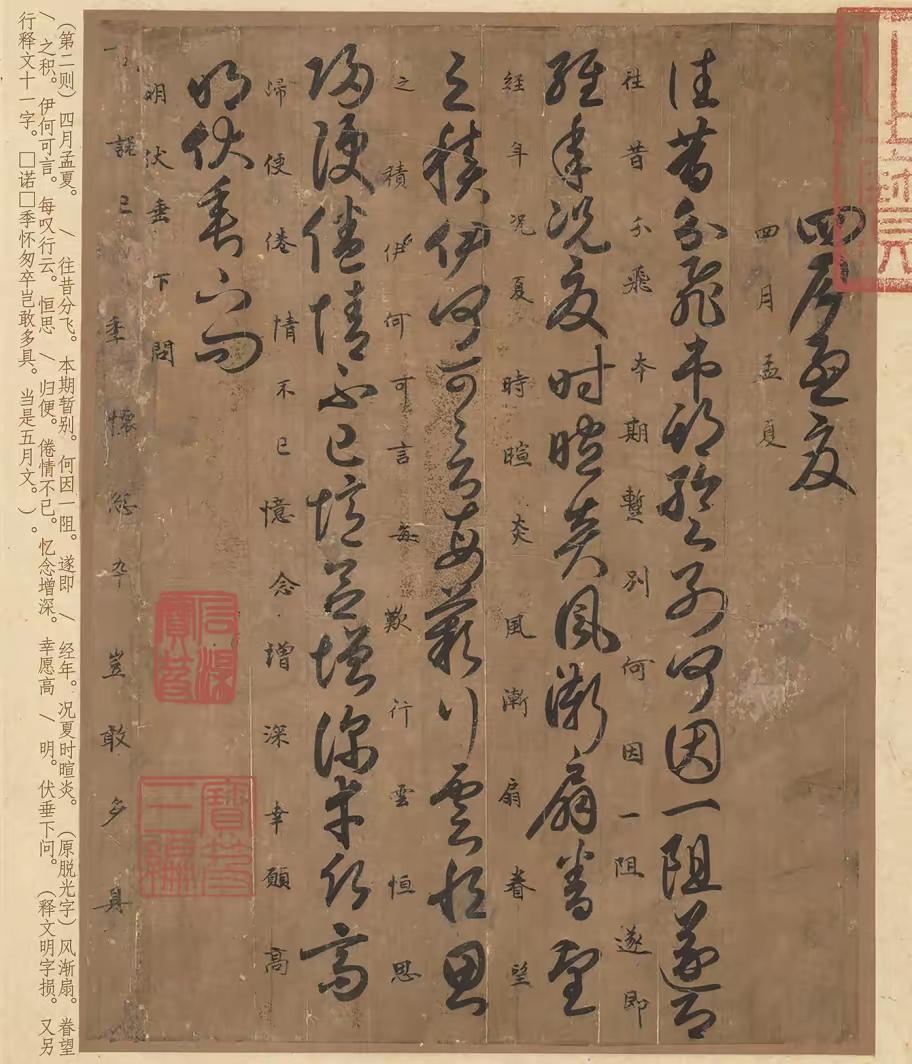 四月孟夏
四月孟夏
往昔分飛本期暫別何因一阻遂即
往昔分飛本期蹔別何因一阻遂即
經年况夏時暄炎風漸扇眷望
経年况夏時暄炎風漸扇眷望
之積伊何可言每歎行雲恒思
之積伊何可言每歎行雲恒思
歸便倦情不已憶念增深幸願高
歸便倦情不已憶念增深幸願高
明伏垂下問
明伏垂下問
石渠寶笈
寶笈三編
諾已季懷怱卒豈敢多具
（第二则）四月孟夏。/往昔分飞。本期暂别。何因一阻。遂即/经年。况夏时暄炎。（原脱光字）风渐扇。眷望
/之积。伊何可言。每叹行云。恒思/归便。倦情不已。忆念增深。幸愿高/明。伏垂下问。（释文明字损。又另
行释文十一字。□诺□季怀匆卒岂敢多具。当是五月文。）。